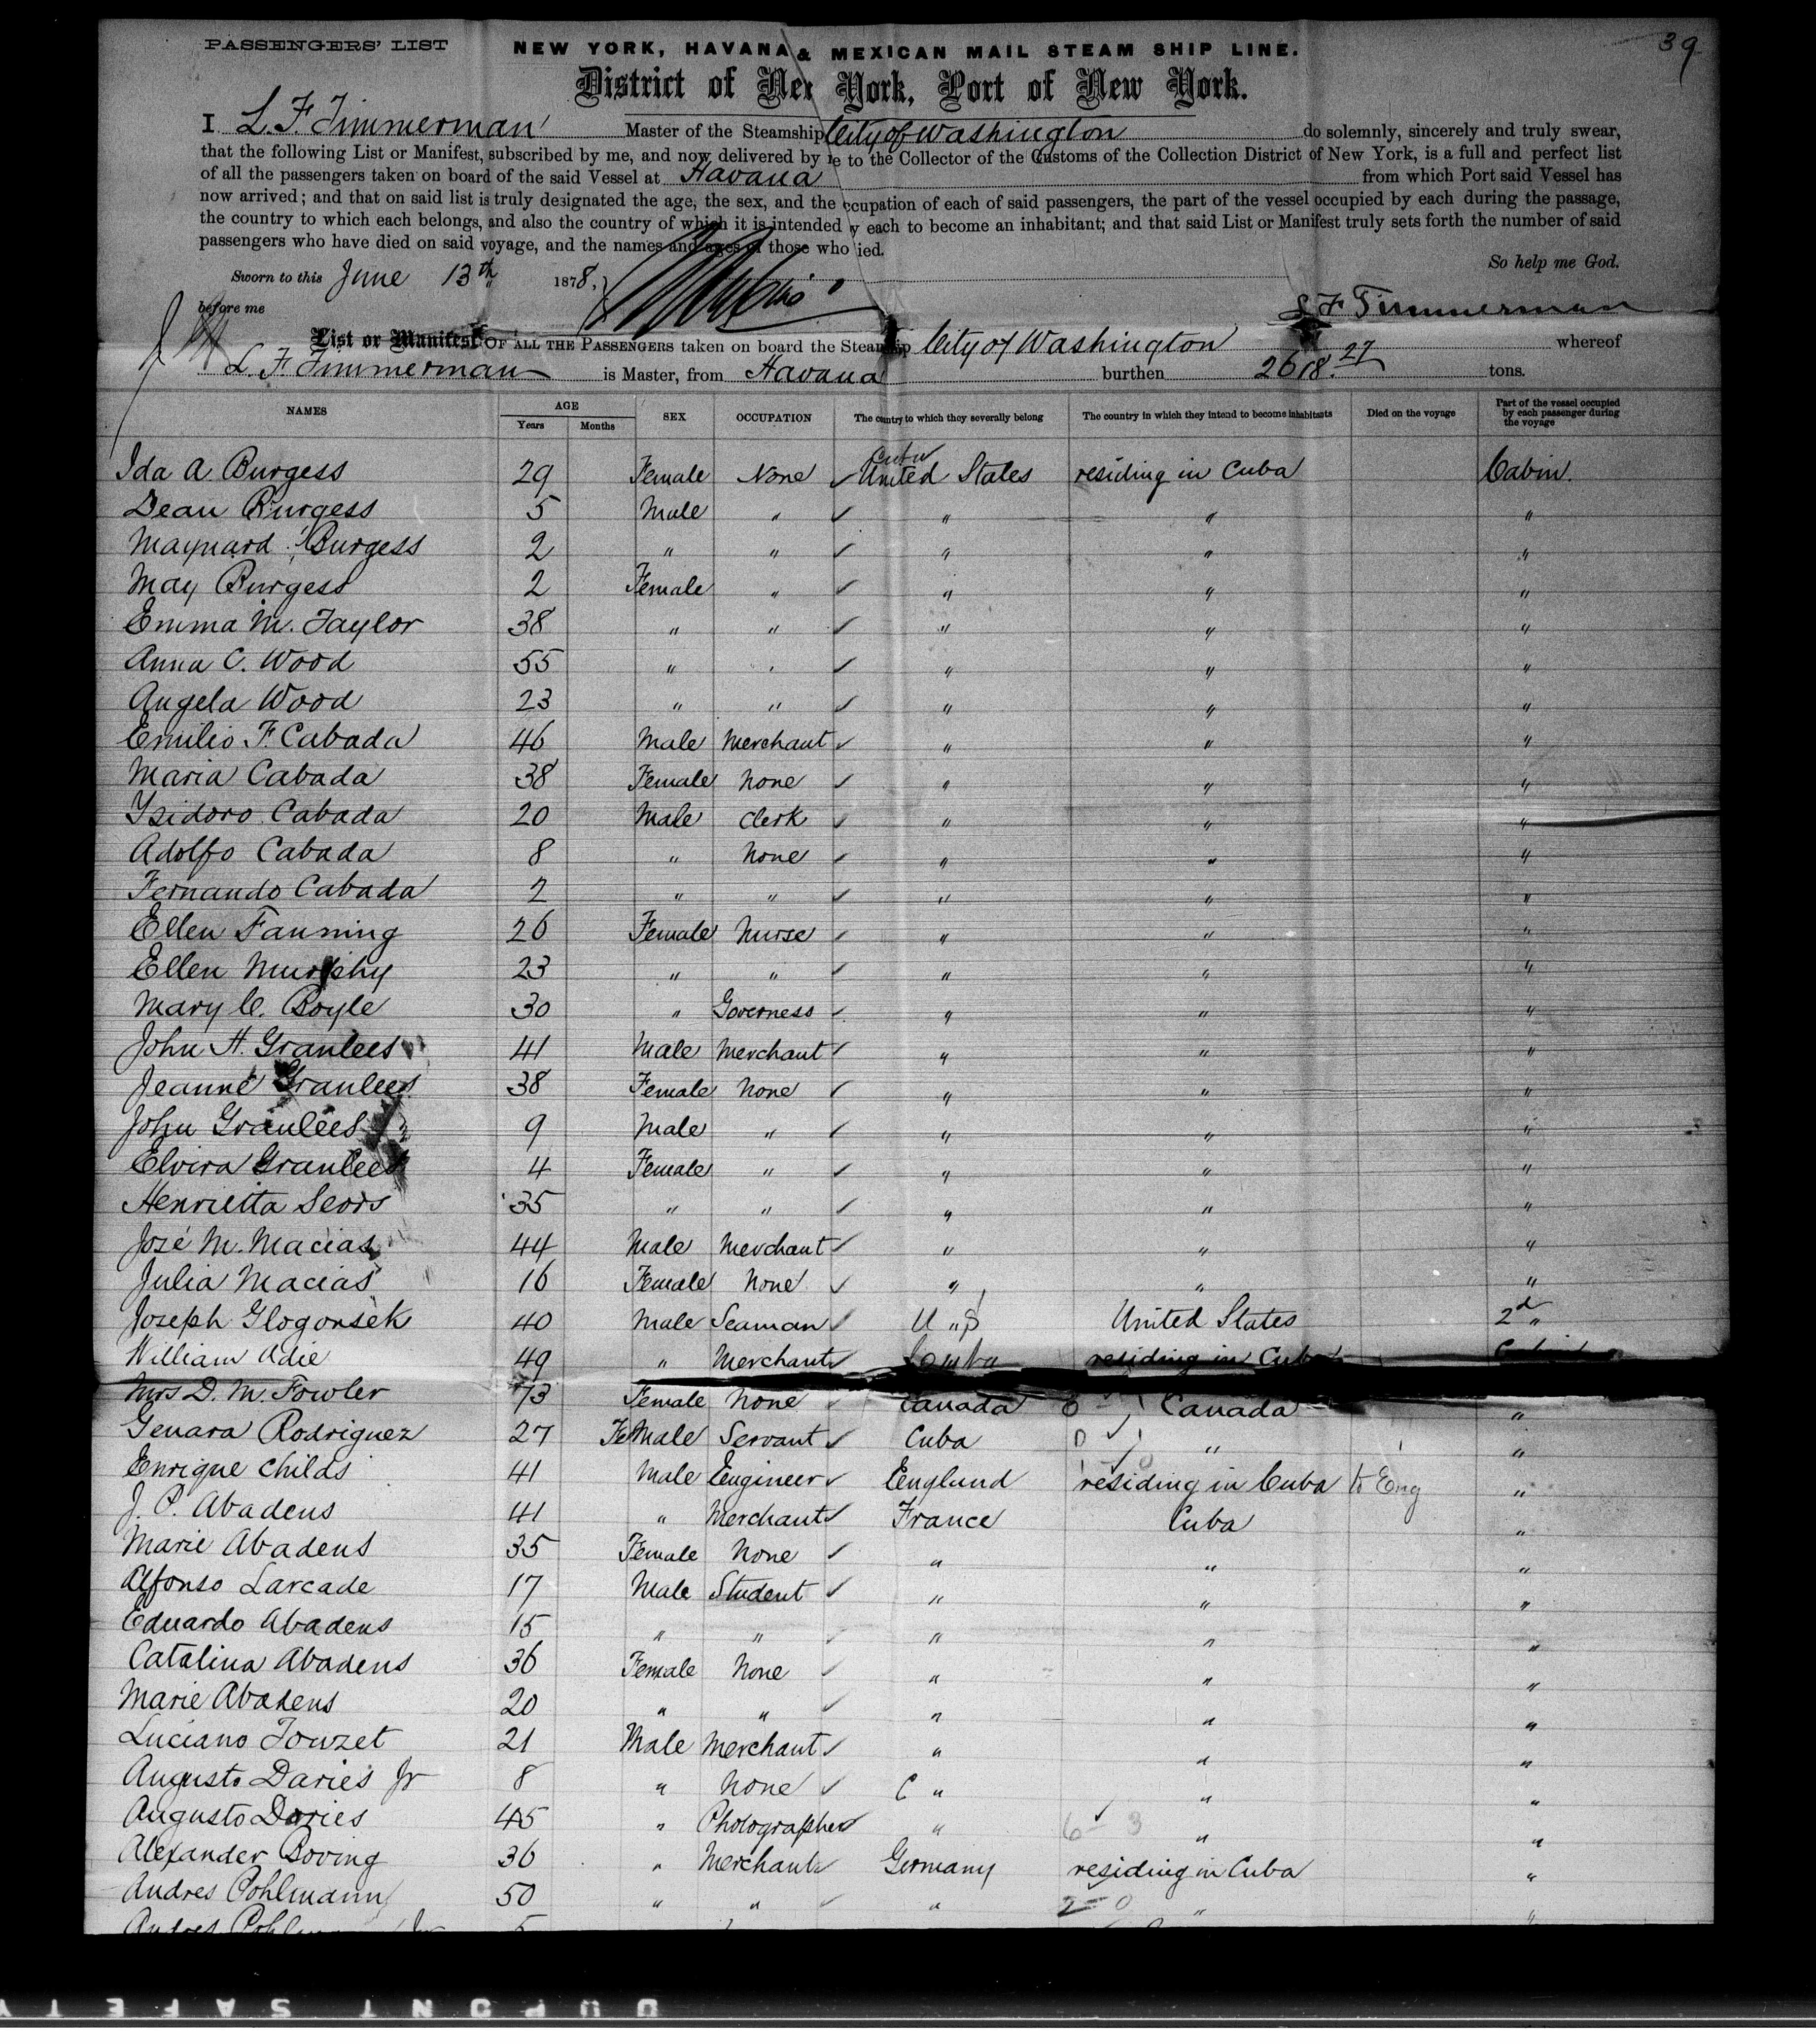 PASSENGERS' LIST NEW YORK, HAVANA & MEXICAN MAIL STEAM SHIP LINE. 39
District of New York, Port of New York.
I L. F. Timmerman Master of the Steamship City of Washington do solemnly, sincerely and truly swear,
that the following List or Manifest, subscribed by me, and now delivered by me to the Collector of the Customs of the Collection District of New York, is a full and perfect list
of all the passengers taken on board of the said Vessel at Havana from which Port said Vessel has
now arrived; and that on said list is truly designated the age, the sex, and the occupation of each of said passengers, the part of the vessel occupied by each during the passage,
the country to which each belongs, and also the country of which it is intended by each to become an inhabitant; and that said List or Manifest truly sets forth the number of said
passengers who have died on said voyage, and the names and ages of those who died.
So help me God.
Sworn to this June 13th 1878,
before me L F Timmerman
List or Manifest OF ALL THE PASSENGERS taken on board the Steamship City of Washington whereof
L. F. Timmerman is Master, from Havana burthen 2618.27 tons.
NAMES AGE Years Months SEX OCCUPATION The country to which they severally belong The country in which they intend to become inhabitants Died on the voyage Part of the vessel occupied by each passenger during the voyage
Cuba
Ida A. Burgess 29 Female None ✓ United States residing in Cuba Cabin.
Dean Burgess 5 Male " ✓ " " "
Maynard Burgess 2 " " ✓ " " "
May Burgess 2 Female " ✓ " " "
Emma M. Taylor 38 " " ✓ " " "
Anna C. Wood 55 " " ✓ " " "
Angela Wood 23 " " ✓ " " "
Emilio F. Cabada 46 Male Merchant ✓ " " "
Maria Cabada 38 Female None ✓ " " "
Isidoro Cabada 20 Male Clerk ✓ " " "
Adolfo Cabada 8 " None ✓ " " "
Fernando Cabada 2 " " ✓ " " "
Ellen Fanning 26 Female Nurse ✓ " " "
Ellen Murphy 23 " " ✓ " " "
Mary C. Boyle 30 " Governess ✓ " " "
John H. Granlees 41 Male Merchant ✓ " " "
Jeanne Granlees 38 Female None ✓ " " "
John Granlees 9 Male " ✓ " " "
Elvira Granlees 4 Female " ✓ " " "
Henrietta Seors 35 " " ✓ " " "
José M. Macias 44 Male Merchant ✓ " " "
Julia Macias 16 Female None ✓ " " "
Joseph Glogorsek 40 Male Seaman ✓ U " S United States 2d "
William Adie 49 " Merchant ✓ residing in Cuba
Mrs D. M. Fowler 73 Female None ✓ Canada Canada "
Genara Rodriguez 27 FeMale Servant ✓ Cuba " "
Enrique Childs 41 Male Engineer ✓ England residing in Cuba to Eng "
J. P. Abadens 41 " Merchant ✓ France Cuba "
Marie Abadens 35 Female None ✓ " " "
Alfonso Larcade 17 Male Student ✓ " " "
Eduardo Abadens 15 " " ✓ " " "
Catalina Abadens 36 Female None ✓ " " "
Marie Abadens 20 " " ✓ " " "
Luciano Touzet 21 Male Merchant ✓ " " "
Augusto Daries Jr 8 " None ✓ C " " "
Augusto Daries 45 " Photographer ✓ " 6 - 3 " "
Alexander Boving 36 " Merchant ✓ Germany residing in Cuba "
Andres Pohlmann 50 " " ✓ " 2 - 0 " "
DUPONT SAFETY